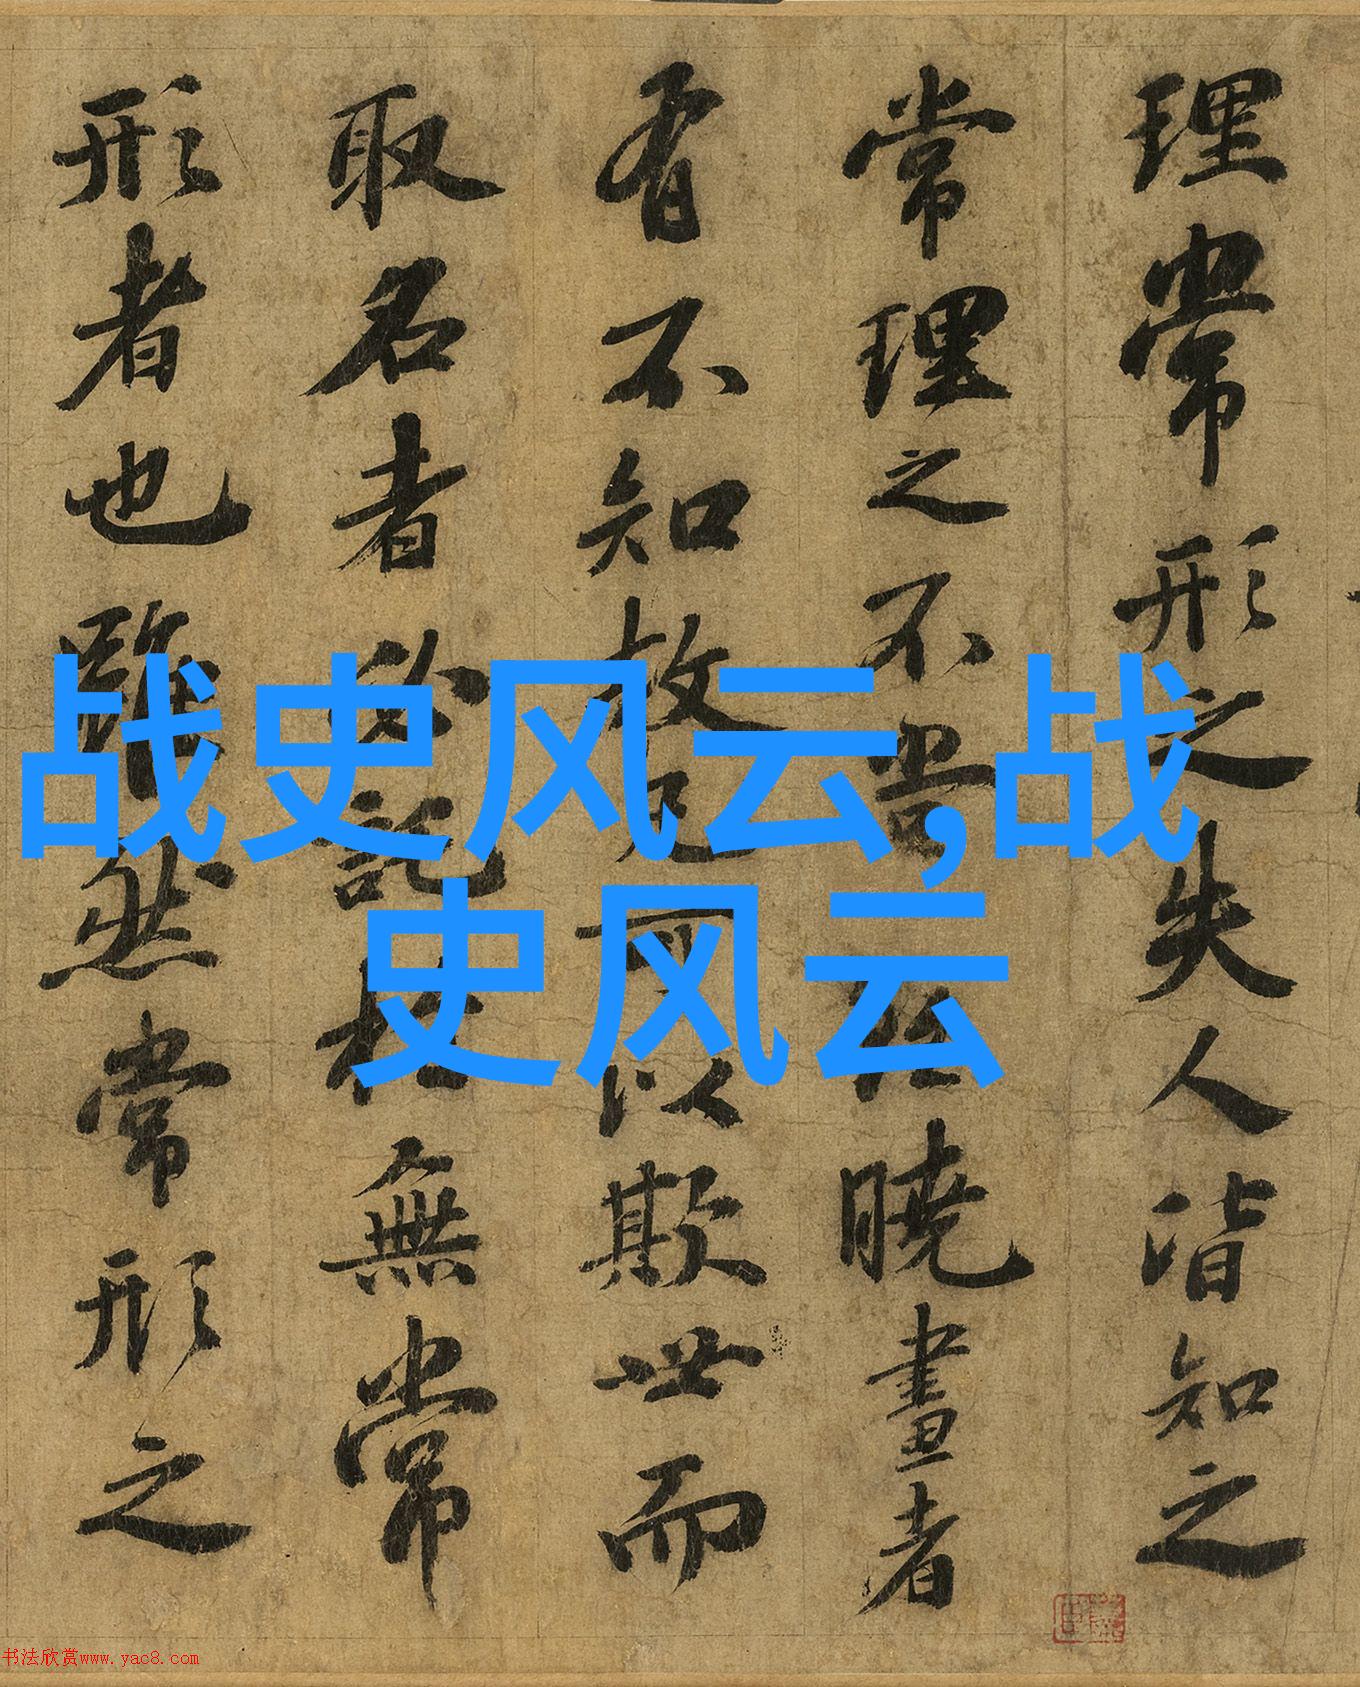 理常形之失人皆知之
常理之不當曉畫者
有不知故凡可以欺世而
取名者必託於無常
形者也雖然常形之
战史风云,战
史风云
书法欣赏www.yac8.com